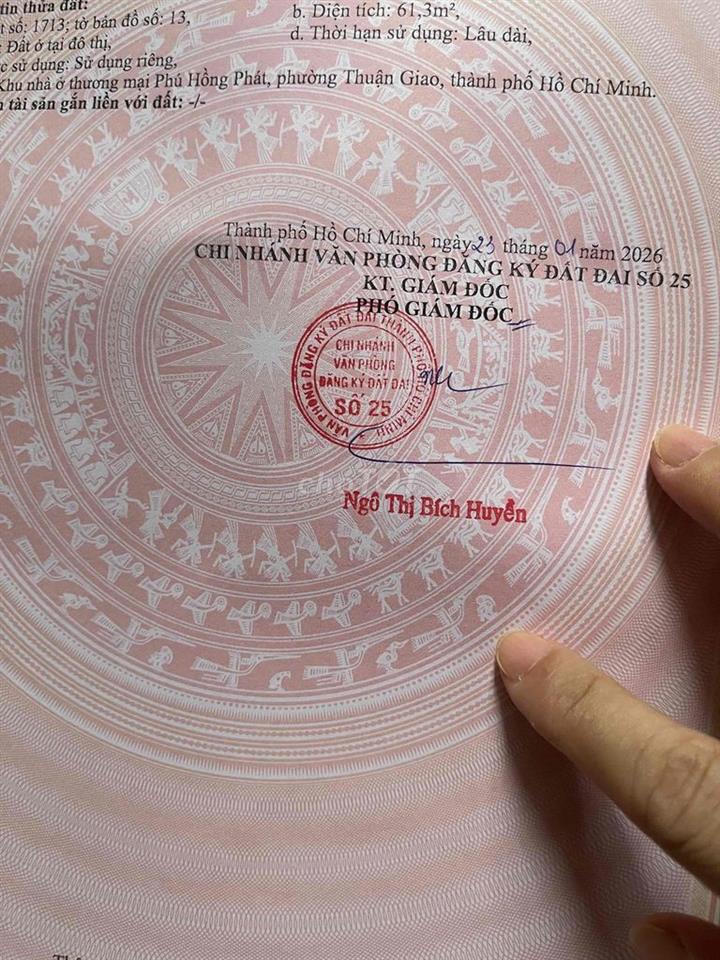 tin thửa đất:
t số: 1713; tờ bản đồ số: 13,
b. Diện tích: 61,3m²,
: Đất ở tại đô thị,
d. Thời hạn sử dụng: Lâu dài,
c sử dụng: Sử dụng riêng,
Khu nhà ở thương mại Phú Hồng Phát, phường Thuận Giao, thành phố Hồ Chí Minh.
n tài sản gắn liền với đất: -/-
Thành phố Hồ Chí Minh, ngày 23 tháng 01 năm 2026
CHI NHÁNH VĂN PHÒNG ĐĂNG KÝ ĐẤT ĐAI SỐ 25
KT. GIÁM ĐỐC
PHÓ GIÁM ĐỐC
VĂN PHÒNG ĐĂNG KÝ ĐẤT ĐAI THÀNH PHỐ HỒ CHÍ MINH
CHI NHÁNH
VĂN PHÒNG
ĐĂNG KÝ ĐẤT ĐAI
SỐ 25
Ngô Thị Bích Huyền